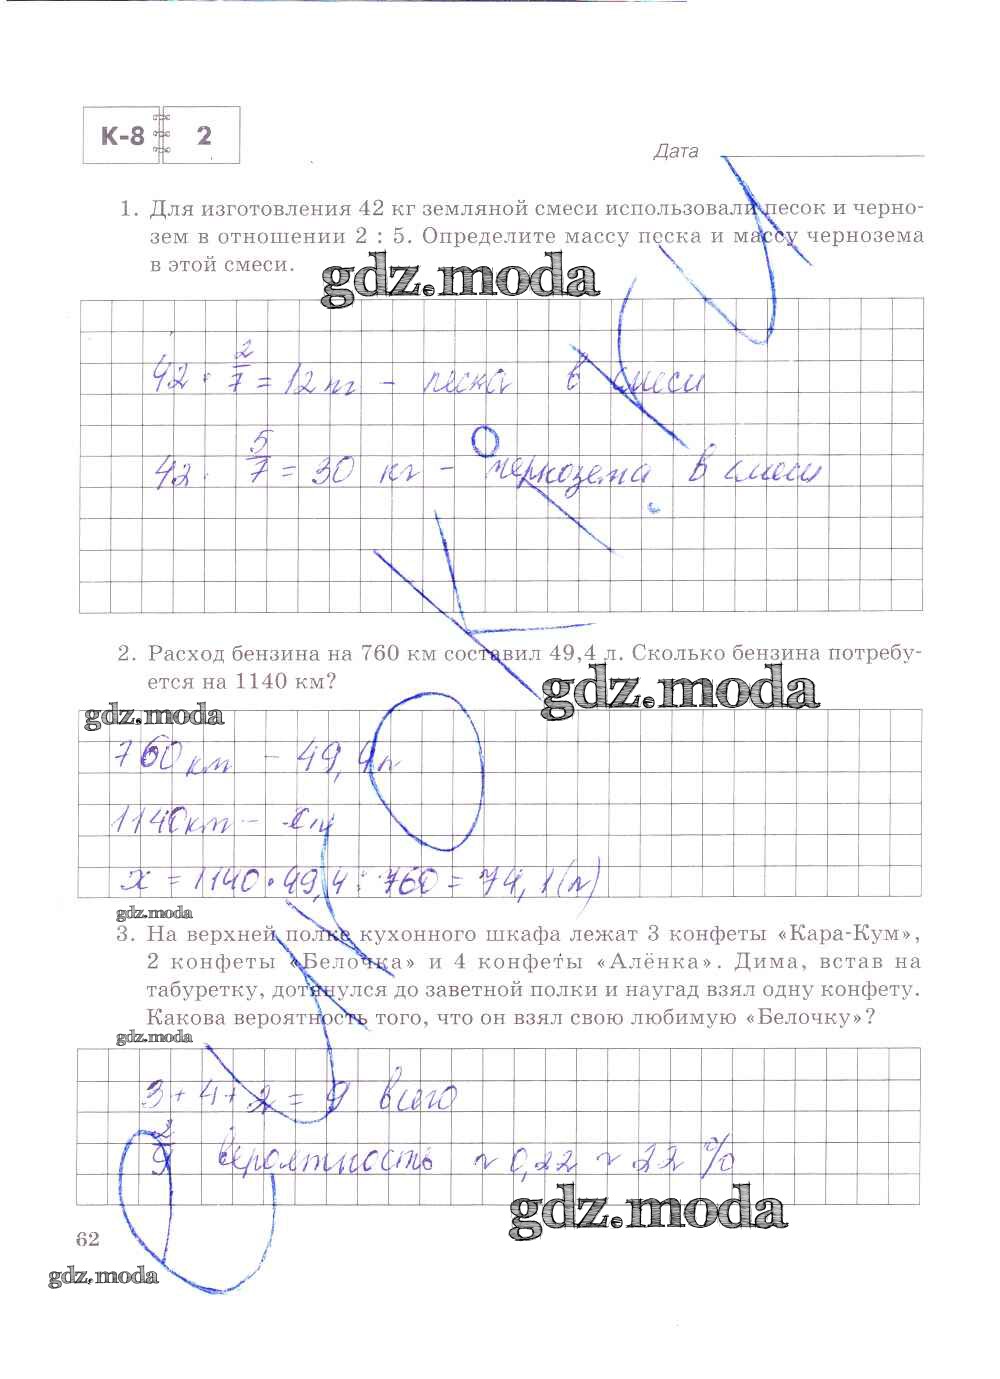 К-8 2
Дата
1. Для изготовления 42 кг земляной смеси использовали песок и черно-
зем в отношении 2 : 5. Определите массу песка и массу чернозема
в этой смеси.
gdz.moda
42 · 2/7 = 12 кг - песка в смеси
42 · 5/7 = 30 кг - чернозема в смеси
2. Расход бензина на 760 км составил 49,4 л. Сколько бензина потребу-
ется на 1140 км?
gdz.moda
gdz.moda
760 км - 49,4 л
1140 км -
x = 1140 · 49,4 : 760 = 74,1 (л)
gdz.moda
3. На верхней полке кухонного шкафа лежат 3 конфеты «Кара-Кум»,
2 конфеты «Белочка» и 4 конфеты «Алёнка». Дима, встав на
табуретку, дотянулся до заветной полки и наугад взял одну конфету.
Какова вероятность того, что он взял свою любимую «Белочку»?
gdz.moda
3 + 4 + 2 = 9 всего
2/9 вероятность ~ 0,22 ~ 22 %
gdz.moda
62
gdz.moda